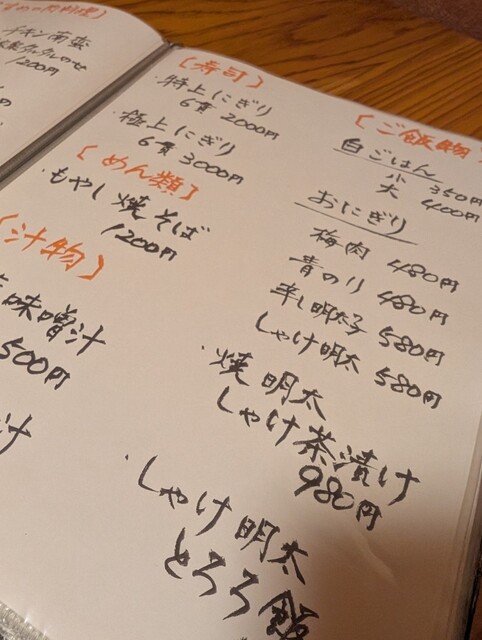 チキン南蛮
1200円
【寿司】
・特上にぎり
6貫 2000円
・極上にぎり
6貫 3000円
【めん類】
・もやし焼そば
1200円
【汁物】
味噌汁
500円
汁
【ご飯物】
白ごはん
小 350円
大 400円
おにぎり
梅肉 480円
青のり 480円
辛し明太子 580円
しゃけ明太 580円
・焼明太
しゃけ茶漬け
980円
・しゃけ明太
とろろ飯